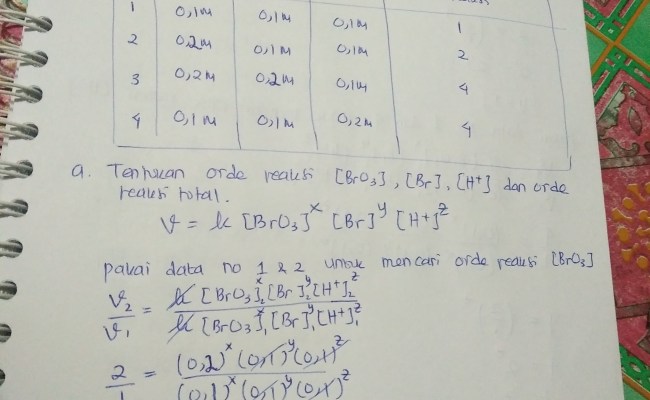 1 0,1 M 0,1 M 0,1 M 1
2 0,2 M 0,1 M 0,1 M 2
3 0,2 M 0,2 M 0,1 M 4
4 0,1 M 0,1 M 0,2 M 4
a. Tentukan orde reaksi [BrO₃], [Br], [H⁺] dan orde
reaksi total.
V = k [BrO₃]ˣ [Br]ʸ [H⁺]ᶻ
pakai data no 1 & 2 untuk mencari orde reaksi [BrO₃]
V₂ / V₁ = k [BrO₃]₂ˣ [Br]₂ʸ [H⁺]₂ᶻ / k [BrO₃]₁ˣ [Br]₁ʸ [H⁺]₁ᶻ
2 / 1 = (0,2)ˣ (0,1)ʸ (0,1)ᶻ / (0,1)ˣ (0,1)ʸ (0,1)ᶻ